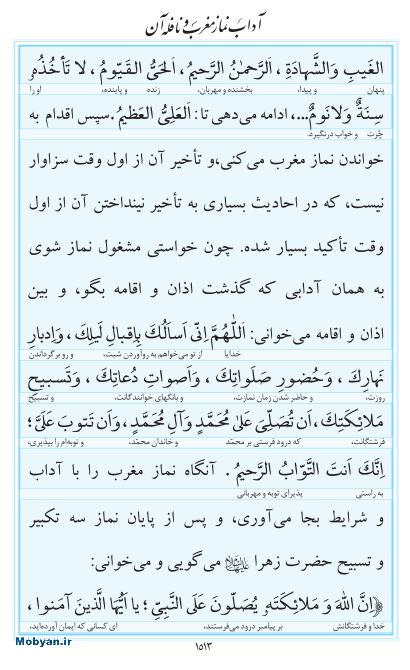 آداب نماز مغرب و نافله آن
الغَیبِ وَالشَّهادَةِ ، اَلرَّحمٰنُ الرَّحیمُ ، اَلحَیُّ القَیّومُ ، لا تَأخُذُهُ
پنهان و پیدا، بخشنده و مهربان، زنده و پاینده، او را
سِنَةٌ وَلا نَومٌ...، ادامه می‌دهی تا: اَلعَلِیُّ العَظیمُ. سپس اقدام به
چُرت و خواب درنگیرد.
خواندن نماز مغرب می‌کنی،و تأخیر آن از اول وقت سزاوار
نیست، که در احادیث بسیاری به تأخیر نینداختن آن از اول
وقت تأکید بسیار شده. چون خواستی مشغول نماز شوی
به همان آدابی که گذشت اذان و اقامه بگو، و بین
اذان و اقامه می‌خوانی: اَللّٰهُمَّ اِنّی اَسأَلُکَ بِاِقبالِ لَیلِکَ ، وَاِدبارِ
خدایا از تو می‌خواهم به روآوردن شبت، و رو برگرداندن
نَهارِکَ ، وَحُضورِ صَلَواتِکَ ، وَاَصواتِ دُعاتِکَ ، وَتَسبیحِ
روزت، و حاضر شدن زمان نمازت، و بانگهای خوانندگانت، و تسبیح
مَلائِکَتِکَ ، اَن تُصَلِّیَ عَلیٰ مُحَمَّدٍ وَآلِ مُحَمَّدٍ ، وَاَن تَتوبَ عَلَیَّ ؛
فرشتگانت، که درود فرستی بر محمّد و خاندان محمّد، و توبه‌ام را بپذیری،
اِنَّکَ اَنتَ التَّوّابُ الرَّحیمُ . آنگاه نماز مغرب را با آداب
به راستی پذیرای توبه و مهربانی
و شرایط بجا می‌آوری، و پس از پایان نماز سه تکبیر
و تسبیح حضرت زهرا می‌گویی و می‌خوانی:
﴿اِنَّ اللّٰهَ وَ مَلائِکَتَهُ یُصَلّونَ عَلَی النَّبِیِّ ؛ یا اَیُّهَا الَّذینَ آمَنوا ،
خدا و فرشتگانش بر پیامبر درود می‌فرستند، ای کسانی که ایمان آورده‌اید،
۱۵۱۳
Mobyan.ir